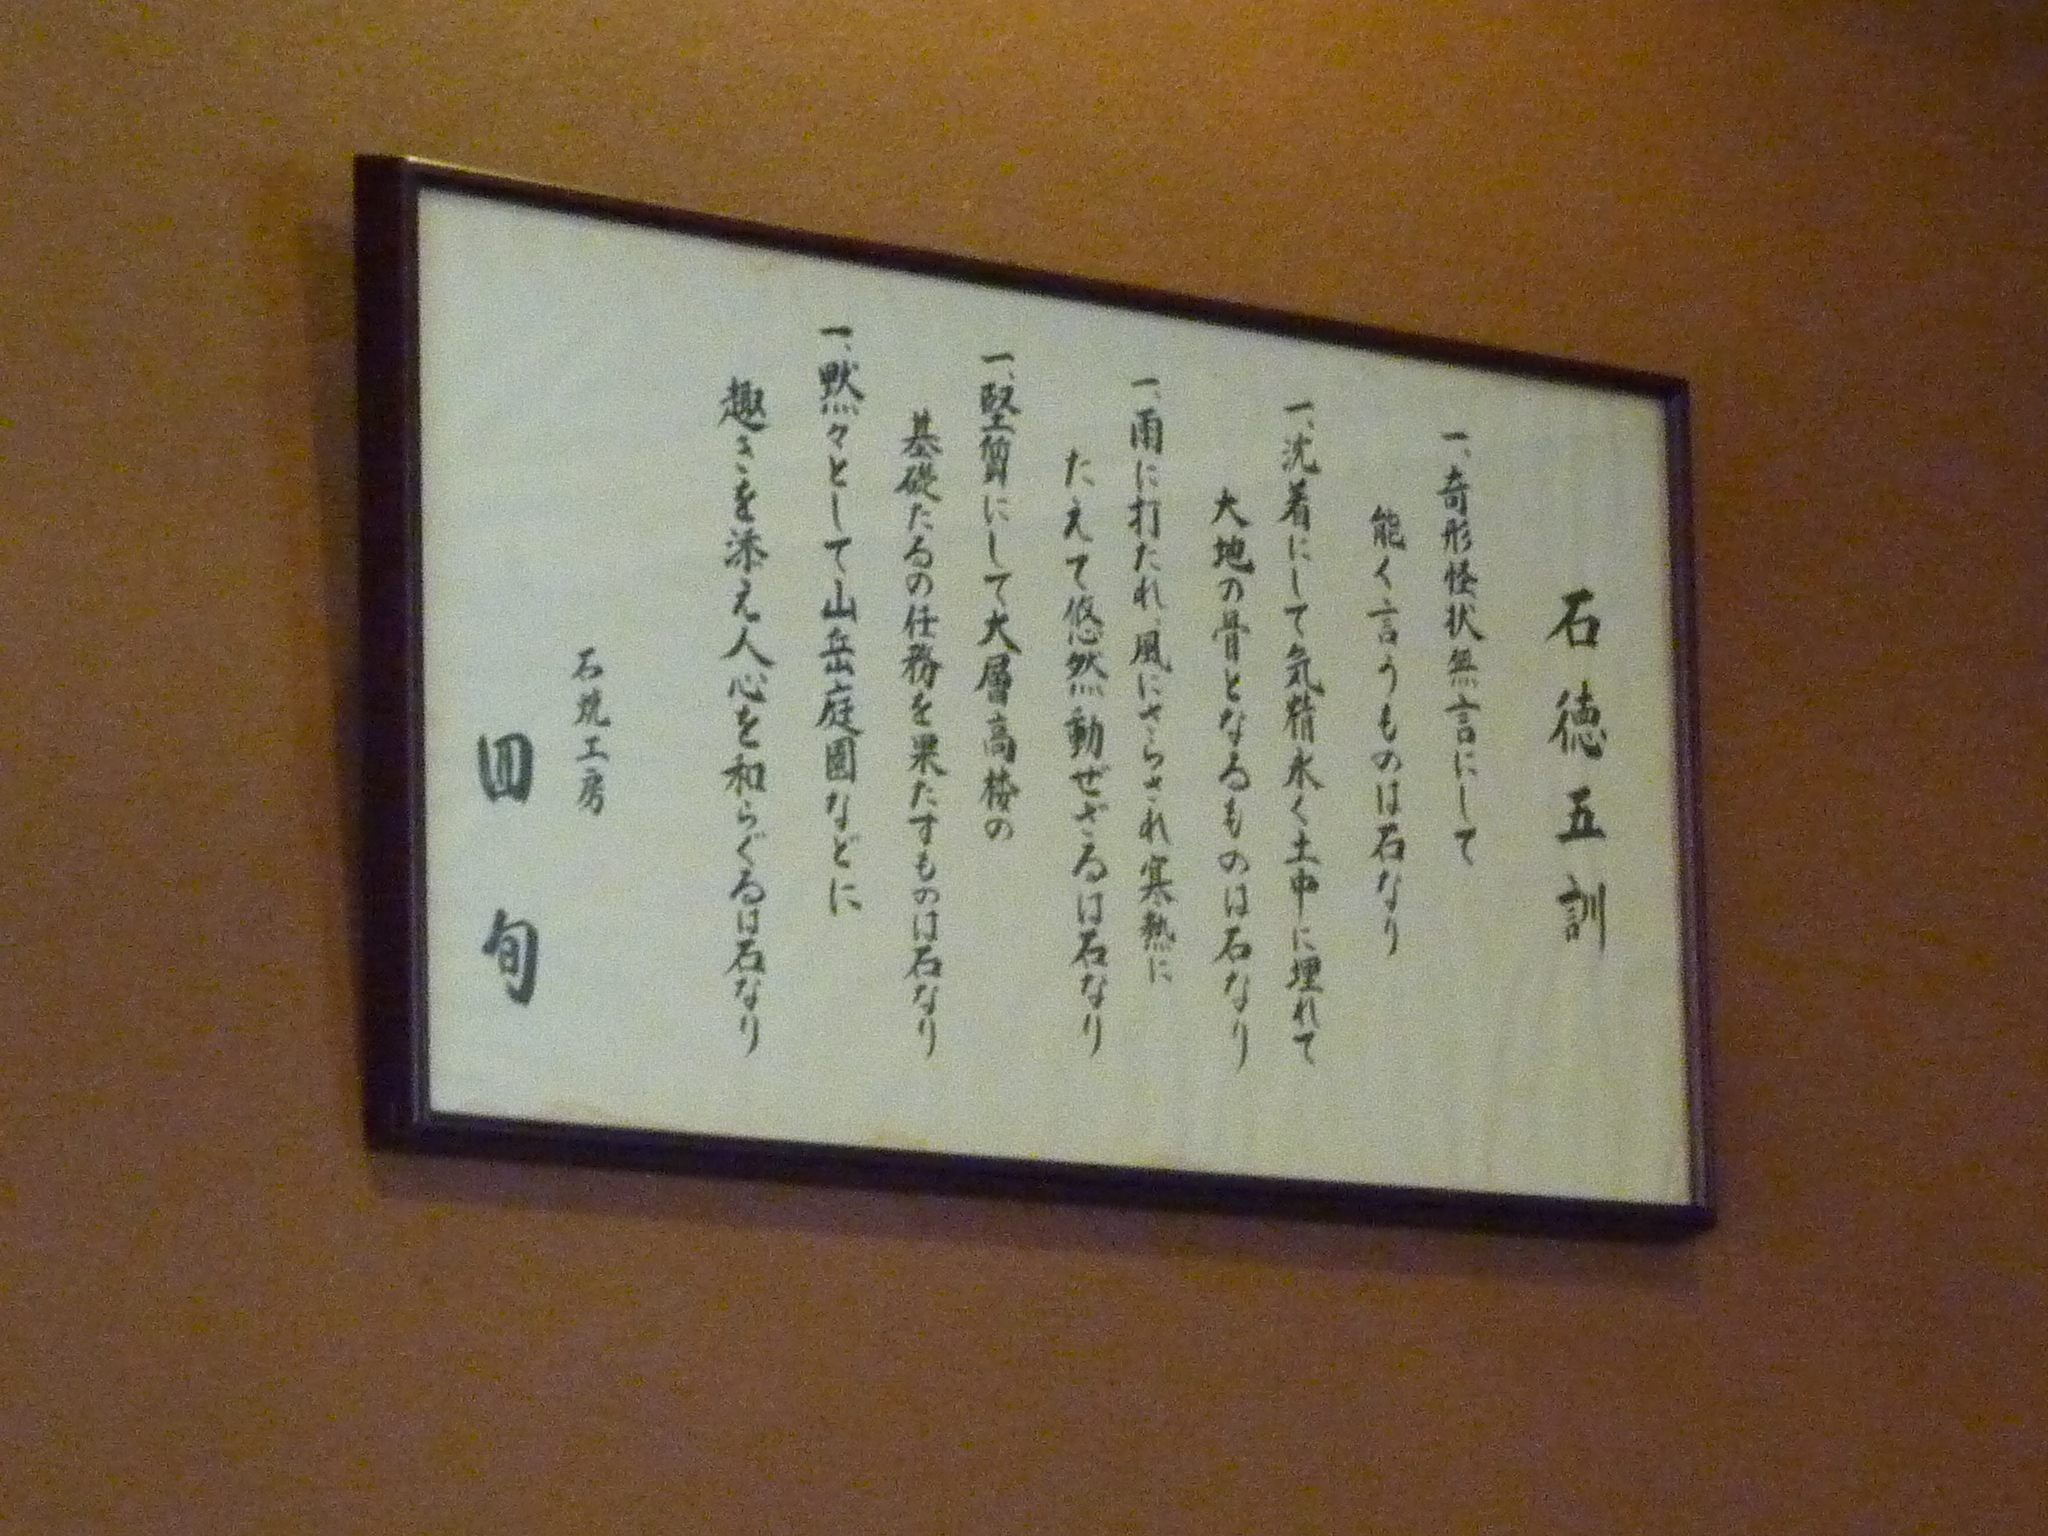 石徳五訓
一、奇形怪状無言にして
能く言うものは石なり
一、沈着にして気精永く土中に埋れて
大地の骨となるものは石なり
一、雨に打たれ、風にさらされ寒熱に
たえて悠然動ぜざるは石なり
一、堅質にして大層高楼の
基礎たるの任務を果たすものは石なり
一、黙々として山岳庭園などに
趣きを添え人心を和らぐるは石なり
石焼工房
四旬